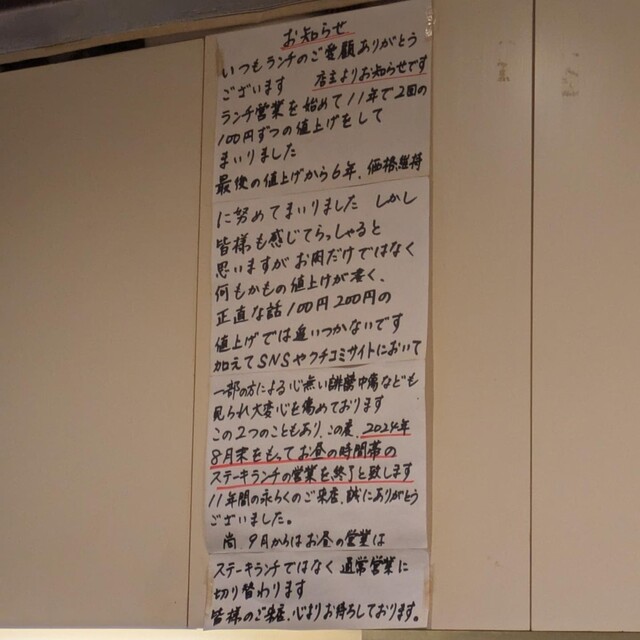 お知らせ
いつもランチのご愛顧ありがとう
ございます 店主よりお知らせです
ランチ営業を始めて11年で2回の
100円ずつの値上げをして
まいりました
最後の値上げから6年、価格維持
に努めてまいりました しかし
皆様も感じてらっしゃると
思いますが お肉だけではなく
何もかもの値上げが凄く、
正直な話100円200円の
値上げでは追いつかないです
加えてSNSやクチコミサイトにおいて
一部の方による心無い誹謗中傷なども
見られ大変心を痛めております
この2つのこともあり、この度、2024年
8月末をもってお昼の時間帯の
ステーキランチの営業を終了と致します
11年間の永らくのご来店、誠にありがとう
ございました。
尚、9月からはお昼の営業は
ステーキランチではなく通常営業に
切り替わります
皆様のご来店、心よりお待ちしております。